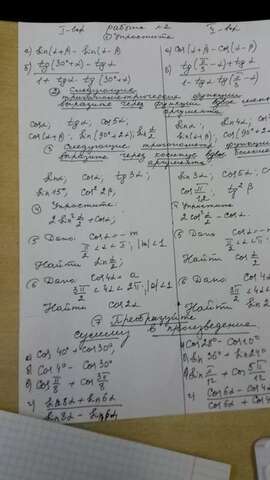 I-вар работа №2 II-вар
① Упростите
а) sin(α+β) - sin(α-β) а) cos(α+β) - cos(α-β)
б) tg(30°+α) - tgα / 1 + tgα · tg(30°+α) б) tg(π/3 - α) + tgα / 1 - tgα tg(π/3 - α)
② Следующие тригонометрические функции
выразите через функции вдвое
cosα, tgα, cos5α, sinα, sin4α,
cos(α+β), sin(30°+2α), sin α/2 sin(α+β),
③ Следующие функции
выразите через косинус вдвое большего
аргумента
sinα, cosα, tg3α, sin3α, cos5α,
sin15°, cos²2β, cos π/12, tg²β
④ Упростите: ④ Упростите
2sin² α/2 + cosα; 2cos² α/2 - cosα.
⑤ Дано: cosα = -m ⑤ Дано cosα =
π/2 < α < π, |m| < 1
Найти sin α/2; Найти cos α/2
⑥ Дано: cos4α = a ⑥ Дано cos4α
3π/2 < 4α < 2π, |a| < 1 3π/2 < 4α
Найти cos2α Найти sin2
⑦ Преобразуйте
сумму в произведение
а) cos40° + cos30° cos28° -
б) cos4° - cos30° sin36° + sin24°
в) cos π/8 + cos 3π/8 sin π/12 + cos 5π/12
г) sin8α + sin6α / sin8α - sin6α г) cos6α - cos / cos6α + cos4